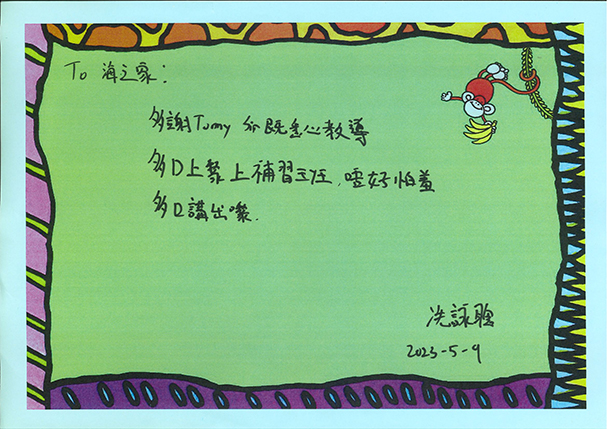 To 海之家:
多謝Tomy 分既悉心教導
多D上黎上補習班, 唔好怕羞
多D講出黎.
冼詠
2023-5-9